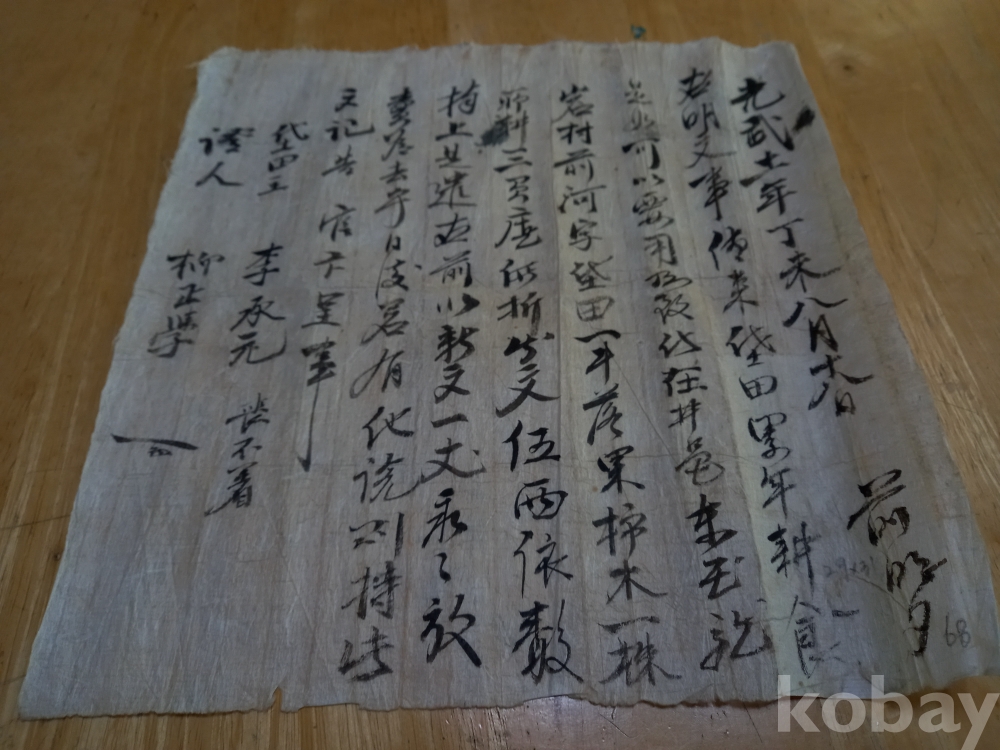 光武十一年丁未八月十八日 前明文
右明文事傳來垈田累年耕食
是如可以要用所致伏在井邑東面龍
岩村前河字垈田一斗落果柿木一株
所耕三貝庫乙折 文伍兩依數
捧上是遣右前以新文一丈永〃放
賣爲去乎日後若有他談則持此
文記告官卞呈事
垈田主 李承元 喪不着
證人 柳正學
68
kobay